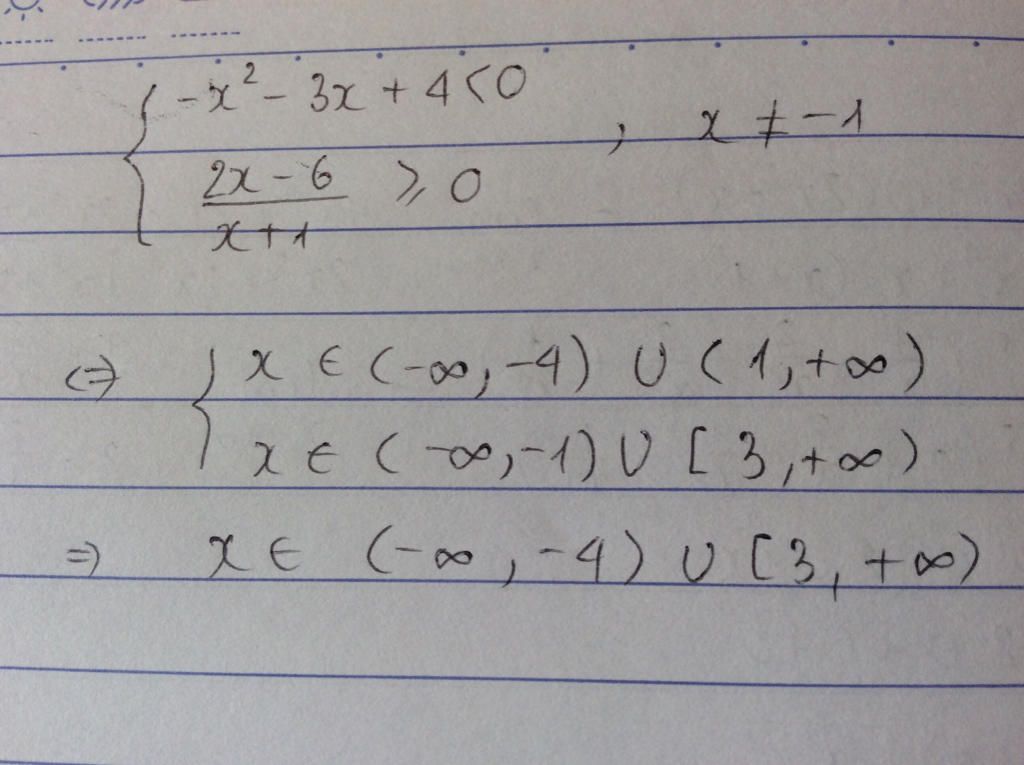 { -x² - 3x + 4 < 0
, x ≠ -1
(2x - 6)/(x + 1) ⩾ 0
⇔ { x ∈ (-∞, -4) ∪ (1, +∞)
x ∈ (-∞, -1) ∪ [3, +∞)
⇒ x ∈ (-∞, -4) ∪ [3, +∞)